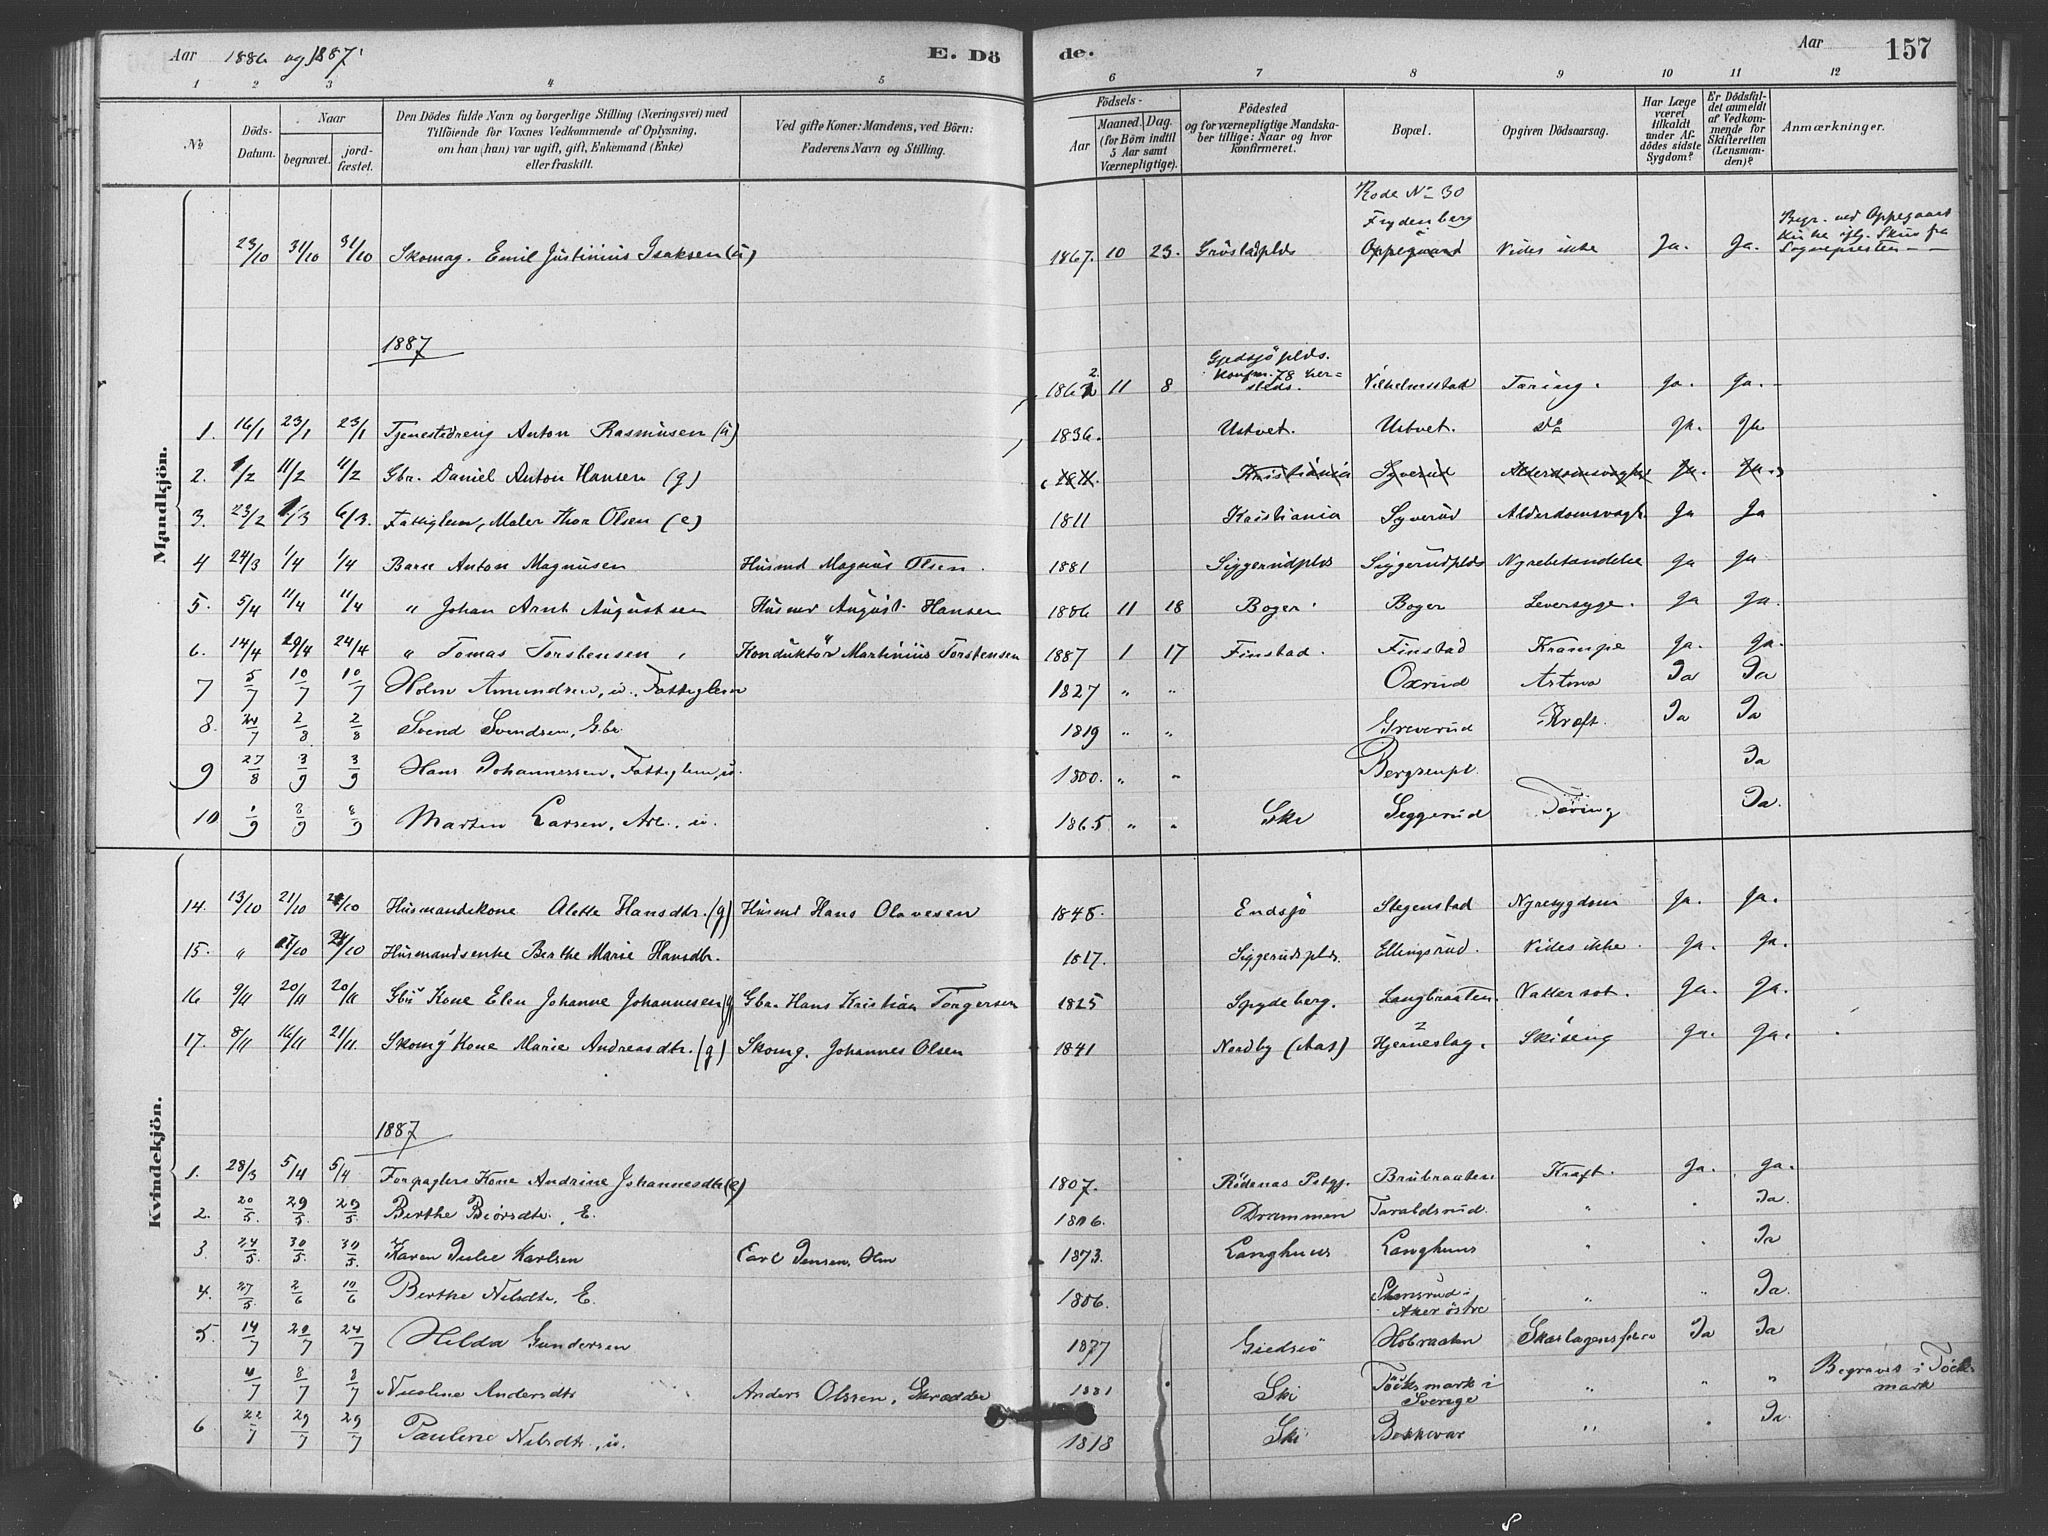 Aar 1886 og 1887. E. Dö de. Aar 157
1 2 3 4 5 6 7 8 9 10 11 12
No. Döds-Datum. Naar begravet. jordfæstet. Den Dödes fulde Navn og borgerlige Stilling (Næringsvei) med Tilföiende for Voxnes Vedkommende af Oplysning, om han (hun) var ugift, gift, Enkemand (Enke) eller fraskilt. Ved gifte Koner: Mandens, ved Börn: Faderens Navn og Stilling. Födsels- Aar Maaned. Dag. (for Börn indtil 5 Aar samt Værnepligtige). Födested og for værnepligtige Mandskaber tillige: Naar og hvor konfirmeret. Bopæl. Opgiven Dödsaarsag. Har Læge været tilkaldt under Afdödes sidste Sygdom? Er Dödsfaldet anmeldt af Vedkommende for Skifteretten (Lensmanden)? Anmærkninger.
Mandkjön.
Rode No 30
Frydenberg
23/10 31/10 31/10 Skomag. Emil Justinius Isaksen (u) 1867. 10 23. Gröstadplds Oppegaard Vides ikke Ja. Ja. Begr. ved Oppegaard Kirke Sognepresten
1887
Gjedsjöplds. Konfm. 78 her-steds.
1862 11 8 Vilhelmsstad Tæring. Ja. Ja.
1. 16/1 23/1 23/1 Tjenestedreng Anton Rasmusen (u) 1836. Ustvet. Ustvet. Do Ja. Ja
2. 1/2 11/2 11/2 Gbr. Daniel Anton Hansen (g) 1811. Kristiania Syverud Alderdomssvagh. Ja. Ja.
3. 23/2 1/3 6/3. Fattiglem, Maler Thor Olsen (e) 1811 Kristiania Syverud Alderdomssvagh. Ja Ja
4 24/3 1/4 1/4 Barn Anton Magnusen Husmd Magnus Olsen. 1881 Siggerudplds Siggerudplds Nyrebetændelse Ja Ja
5. 5/4 11/4 11/4 " Johan Arnt Augustsen Husmd August Hansen 1886 11 18 Boger Boger Leversyge. Ja Ja.
6. 14/4 19/4 24/4 " Tomas Torstensen Konduktör Martinius Torstensen 1887 1 17 Finstad. Finstad Krampe Ja. Ja.
7 5/7 10/7 10/7 Holm Amundsen, u. Fattiglem 1827 " " Oxrud Astma Ja Ja
8. 24/7 2/8 2/8 Svend Svendsen, Gbr. 1819 " " Greverud Kræft. Ja Ja
9 27/8 3/9 3/9 Hans Johannessen, Fattiglem, u. 1800. " " Bergsenpl. Ja
10 1/9 8/9 8/9 Marten Larsen, Arb., u. 1865 " " Ski Siggerud Tæring Ja.
Kvindekjön.
14. 13/10 21/10 24/10 Husmandskone Alette Hansdtr. (g) Husmd Hans Olavesen 1845. Endsjö Stegenstad Nyresygdom Ja. Ja.
15. " 27/10 24/10 Husmandsenke Berthe Marie Hansdtr. 1817. Siggerudsplds. Ellingsrud. Vides ikke. Ja. Ja.
16 9/11 20/11 20/11 Gbrs Kone Elen Johanne Johannesen (g) Gbr. Hans Kristian Torgersen 1825 Spydeberg. Langbraaten. Vattersot. Ja. Ja.
17. 8/11 16/11 21/11 Skomg Kone Marie Andreasdtr. (g) Skomg. Johannes Olsen 1841 Nordby (Aas) Hjerneslag. Ja. Ja.
1887
1. 28/3 5/4 5/4 Forpagters Kone Andrine Johannesdtr (e) 1807. Rödenæs Pstgj. Brubraaten. Kræft. Ja. Ja.
2. 20/5. 29/5. 29/5 Berthe Biörsdtr., E. 1806. Drammen Taraldsrud. " " Ja
3. 24/5. 30/5. 30/5. Karen Julie Karlsen Carl Jensen, Hm 1873. Langhuus Langhuus " " Ja
4. 27/5. 2/6 10/6 Berthe Nilsdtr, E. 1806. Stensrud i Aker östre " " Ja.
5. 14/7 20/7 24/7 Hilda Gundersen 1877 Giedsiö Hobraaten Skarlagensfeber Ja Ja
4/7 8/7 8/7 Nicoline Andersdtr Anders Olssen, Skrædder 1881 Ski Töcksmark i Sverige " " " Begravet i Töcksmark
6 22/7 29/7 29/7 Pauline Nilsdtr., u. 1818 Ski Bakkevar " " Ja.